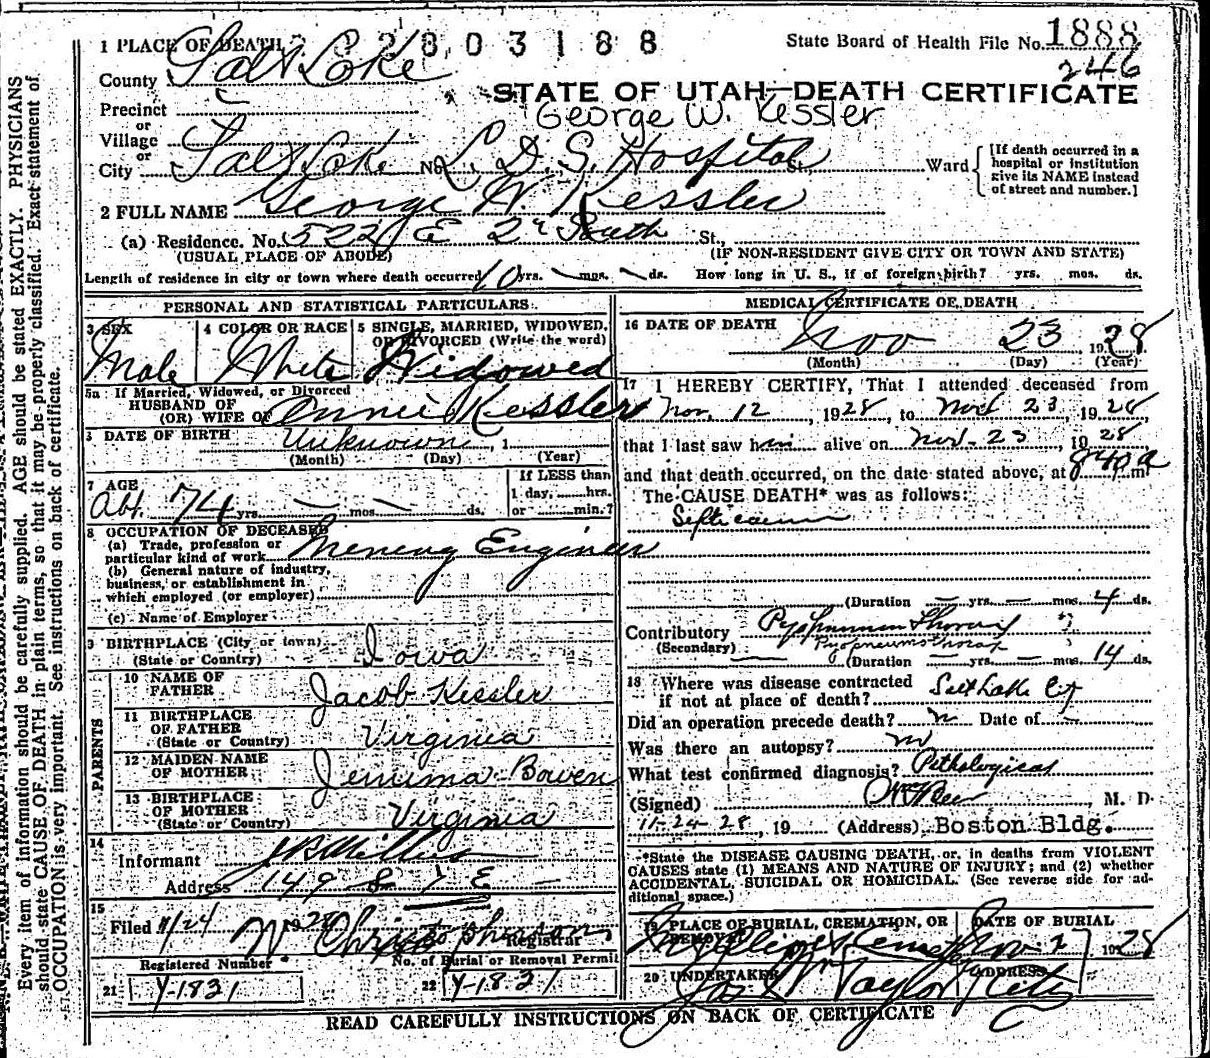 1 PLACE OF DEATH 2 8 0 3 1 8 8
State Board of Health File No. 1888
246
County Salt Lake
STATE OF UTAH—DEATH CERTIFICATE
Precinct
George W. Kessler
or
Village
or
City Salt Lake No. L. D. S. Hospital St., Ward
[If death occurred in a
hospital or institution
give its NAME instead
of street and number.]
2 FULL NAME George W. Kessler
(a) Residence. No. 522 E 2d South St.,
(USUAL PLACE OF ABODE) (IF NON-RESIDENT GIVE CITY OR TOWN AND STATE)
Length of residence in city or town where death occurred 10 yrs. — mos. — ds. How long in U. S., if of foreign birth? yrs. mos. ds.
PERSONAL AND STATISTICAL PARTICULARS
3 SEX 4 COLOR OR RACE 5 SINGLE, MARRIED, WIDOWED,
OR DIVORCED (Write the word)
Male White Widowed
5a If Married, Widowed, or Divorced
HUSBAND OF
(OR) WIFE OF Annie Kessler
DATE OF BIRTH Unknown, 1
(Month) (Day) (Year)
7 AGE
Abt. 74 yrs. — mos. — ds.
If LESS than
1 day, hrs.
or min.?
8 OCCUPATION OF DECEASED
(a) Trade, profession or
particular kind of work Mening Engineer
(b) General nature of industry,
business, or establishment in
which employed (or employer)
(c) Name of Employer
9 BIRTHPLACE (City or town)
(State or Country) Iowa
PARENTS
10 NAME OF
FATHER Jacob Kessler
11 BIRTHPLACE
OF FATHER
(State or Country) Virginia
12 MAIDEN NAME
OF MOTHER Jemima Bowen
13 BIRTHPLACE
OF MOTHER
(State or Country) Virginia
14
Informant
Address 149 S 7 E
15
Filed 11/24 1928 W Christopherson
Registrar
Registered Number No. of Burial or Removal Permit
21 Y-1831 22 Y-1831
MEDICAL CERTIFICATE OF DEATH
16 DATE OF DEATH
Nov 23 1928
(Month) (Day) (Year)
17 I HEREBY CERTIFY, That I attended deceased from
Nov. 12, 1928, to Nov 23, 1928
that I last saw him alive on Nov. 23, 1928
and that death occurred, on the date stated above, at 840 a m
The CAUSE DEATH* was as follows:
Septicaemia
(Duration — yrs. — mos. 4 ds.
Contributory Pyopneumothorax
(Secondary) Pyopneumothorax
(Duration — yrs. — mos. 14 ds.
18 Where was disease contracted
if not at place of death? Salt Lake Cy
Did an operation precede death? n Date of —
Was there an autopsy? no
What test confirmed diagnosis? Pathological
(Signed) M. D.
11-24-28, 19 (Address) Boston Bldg.
*State the DISEASE CAUSING DEATH, or, in deaths from VIOLENT
CAUSES state (1) MEANS AND NATURE OF INJURY; and (2) whether
ACCIDENTAL, SUICIDAL OR HOMICIDAL. (See reverse side for ad-
ditional space.)
19 PLACE OF BURIAL, CREMATION, OR DATE OF BURIAL
REMOVAL
Mt. Olivet Cemetery Nov 1928
20 UNDERTAKER ADDRESS
Jos Wm Taylor City
READ CAREFULLY INSTRUCTIONS ON BACK OF CERTIFICATE
Every item of information should be carefully supplied. AGE should be stated EXACTLY. PHYSICIANS
should state CAUSE OF DEATH in plain terms, so that it may be properly classified. Exact statement of
OCCUPATION is very important. See instructions on back of certificate.